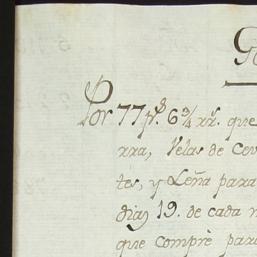 G
Por 77 p.s 6 3/4 rr.s que
rra, Velas de Cev
tes, y Leña para
dias 19. de cada m
que comprè para